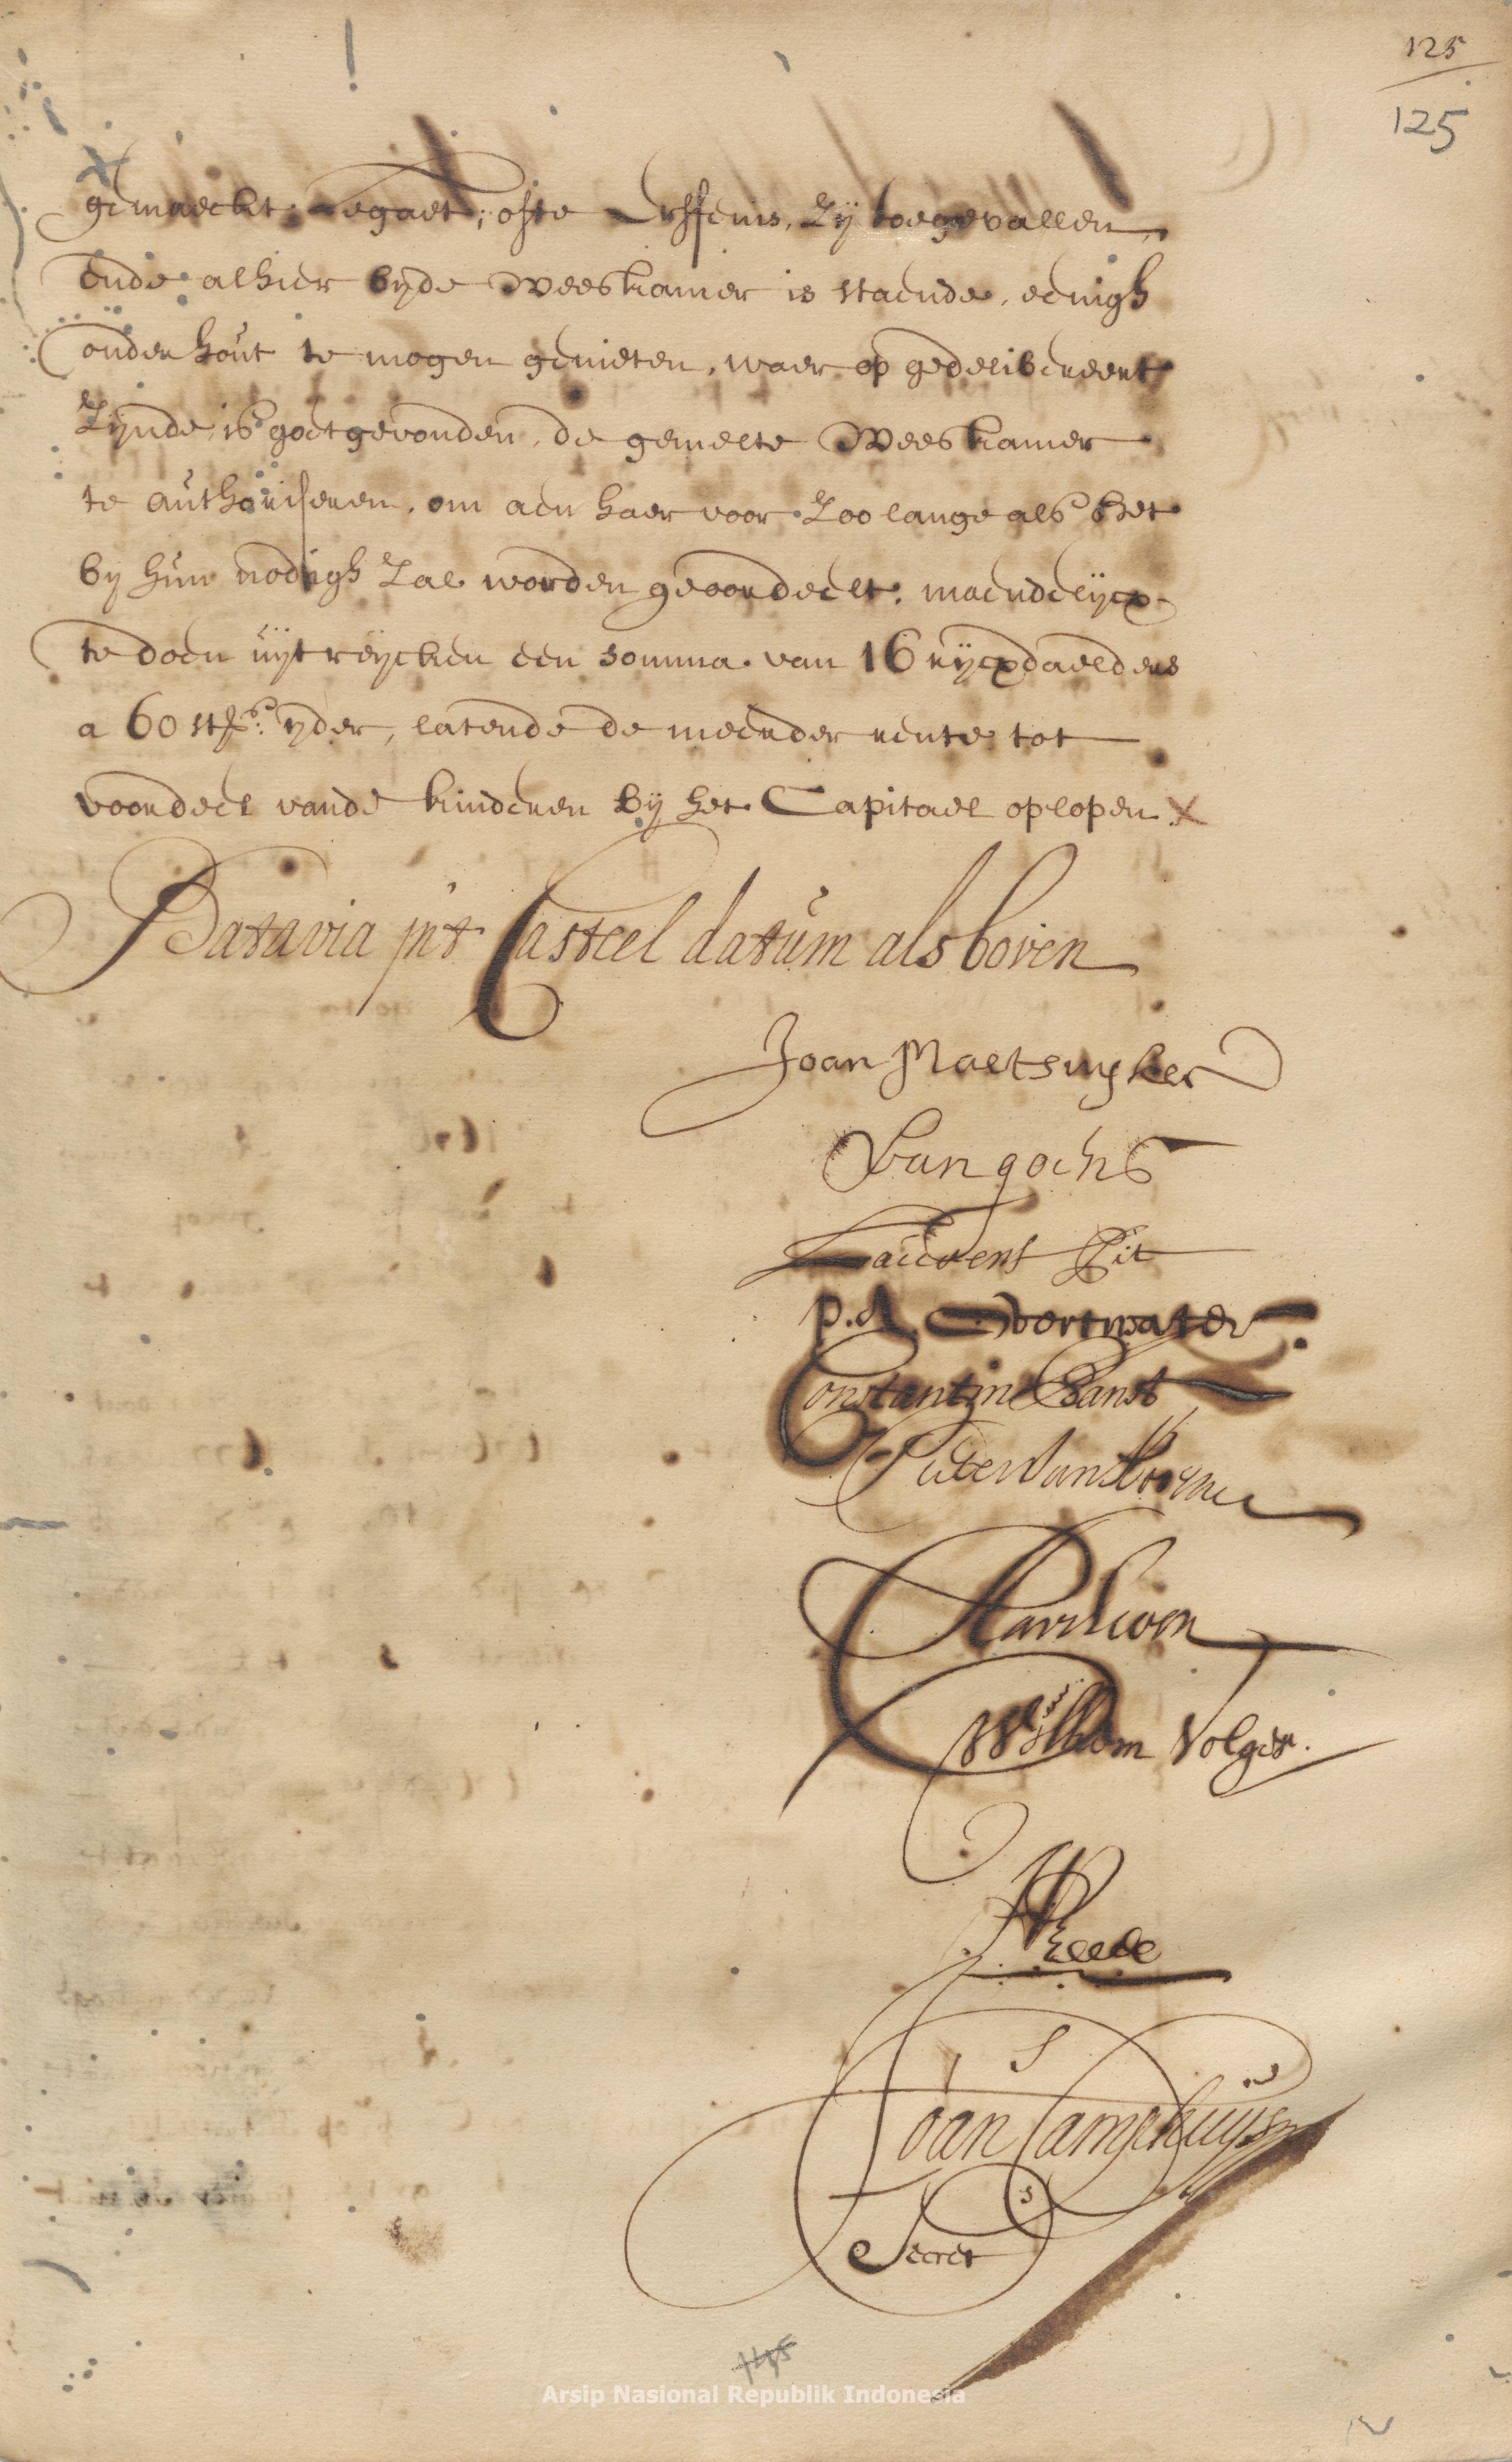 125
125
gemaeckt Legaet, ofte Erffenis, zy toegevallen,
ende alhier byde Weeskamer is staende, eenigh
onderhout te mogen genieten, waer op gedelibereert
zynde, is goetgevonden, de gemelte Weeskamer
te authoriseren, om aen haer voor zoo lange als het
by hun nodigh zal worden geoordeelt, maendelycx
te doen uytreycken een somma van 16 rycxdaelders
a 60 strs. yder, latende de meerder rente tot
voordeel vande kinderen by het Capitael oplopen
Batavia int Casteel datum als boven
Joan Maetsuyker
Van goens
Laurens Pit
P. A. Overtwater
Constantin Ranst
Pieter Van Hoorn
Willem Volger.
Reede
Joan Camphuys
Secret
145
Arsip Nasional Republik Indonesia